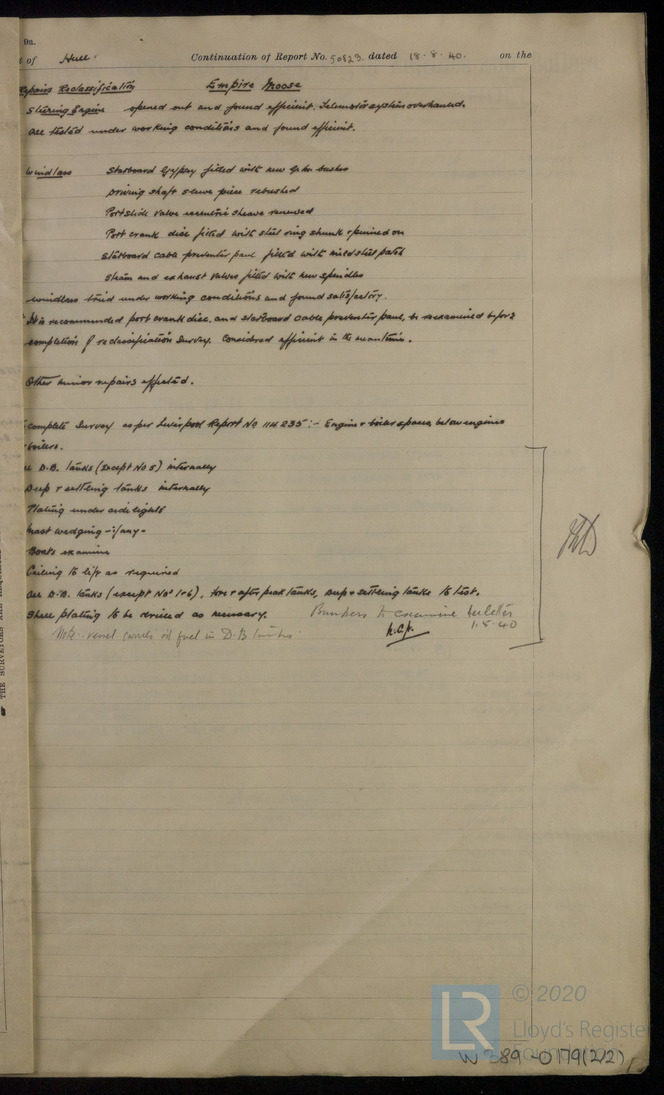 9a.
t of Hull Continuation of Report No. 50823 dated 18.8.40. on the
Repairs Reclassification Empire Moose
Steering Engine opened out and found efficient. Telemotor system overhauled.
all tested under working conditions and found efficient.
Windlass Starboard Gypsy fitted with new bushes
Driving shaft sleeve piece rebushed
Port slide valve eccentric sheave renewed
Port crank disc fitted with steel ring shrunk & pinned on
Starboard cable preventer pawl fitted with mild steel patch
Steam and exhaust valves fitted with new spindles
windlass tried under working conditions and found satisfactory.
It is recommended port crank disc, and starboard cable preventer pawl, be reexamined before
completion of reclassification survey. Considered efficient in the meantime.
Other minor repairs effected.
complete Survey as per Liverpool Report No 114235 :- Engine & boiler spaces, below engines
boilers.
D.B. tanks (except No 5) internally
Deep & settling tanks internally
Plating under sidelights
Mast wedging - if any -
Boats examine
Ceiling to lift as required
all D.B. tanks (except Nos 1 & 6), fore & after peak tanks, deep & settling tanks to test.
Shell plating to be drilled as necessary. Bunkers to examine
1.8.40
Note - vessel carries oil fuel in D.B tanks.
THE SURVEYORS ARE REQUESTED
LR
© 2020
Lloyd's Register
Foundation
W389-0179(2/2)